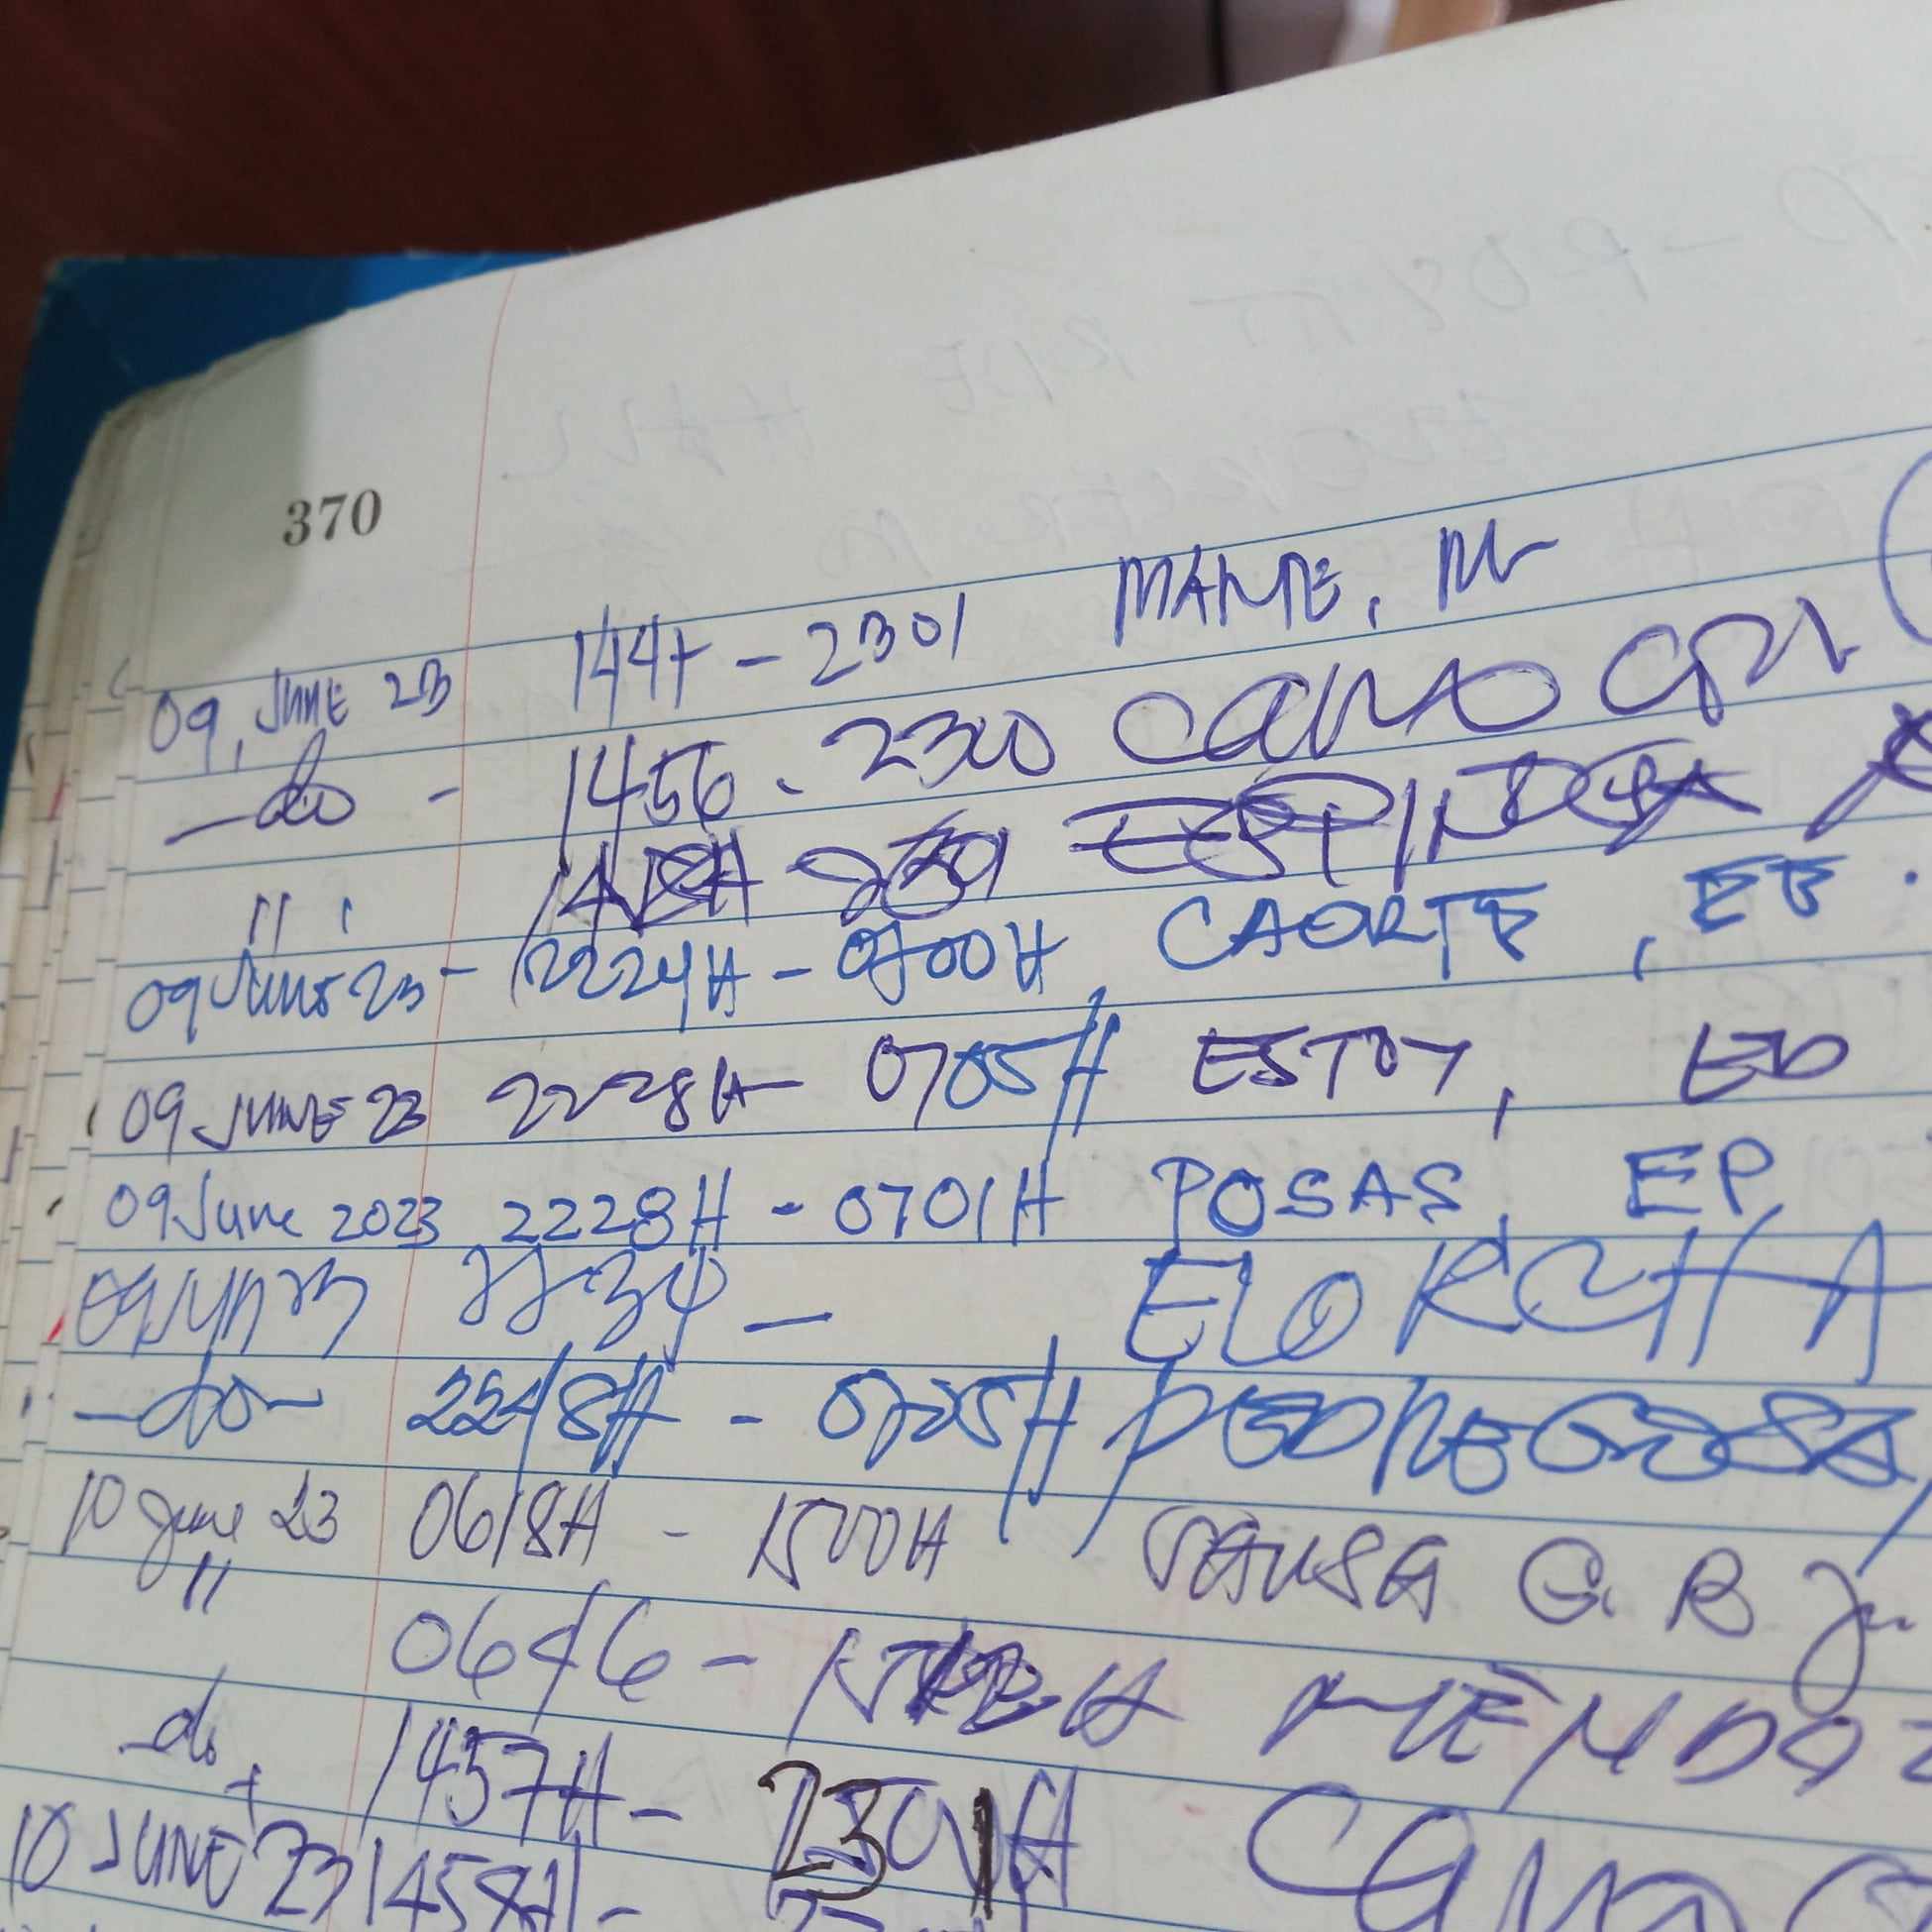 370
09, JUNE 23 1447 - 2301 MAME, M
-do- 1456 - 2300 CANO
11
09 June 23 - 2224H - 0700H CAORTE, EB
09 JUNE 23 2228H - 0705H ESTOY, ED
09 June 2023 2228H - 0701H POSAS, EP
09 Jun 23 2234 - ELORCHA
-do- 2248H - 0705H
10 June 23 0618H - 1500H SAUSA G. B Jr
11 0646 - H MENDOZ
-do- 1457H - 2301H CANO
10 JUNE 23 1458H -